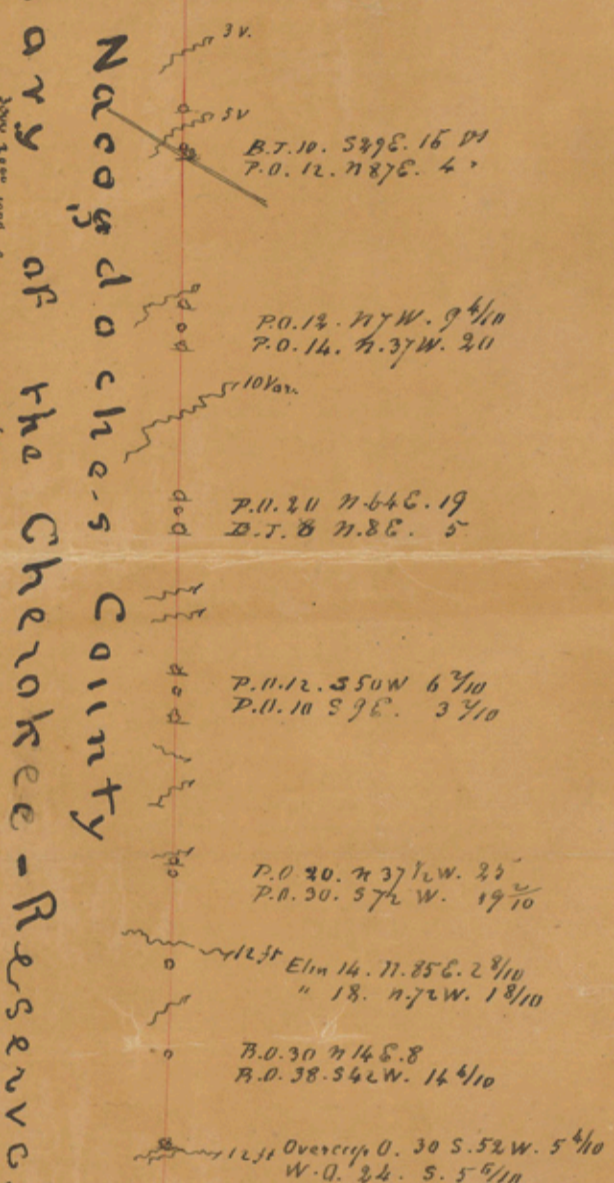 Nacogdoches County
ary of the Cherokee-Reserva
3 V.
5 V
B.J.10. S29E. 15 vs
P.O.12. N87E. 4 "
P.O.12. N7W. 9 4/10
P.O.14. N.37W. 20
10 Var.
P.O.20 N.64E. 19
B.J. 8 N.8E. 5
P.O.12. S50W 6 2/10
P.O.10 S9E. 3 7/10
P.O 20. N 37 1/2 W. 25
P.O.30. S72 W. 19 2/10
12 ft
Elm 14. N.85E. 2 8/10
" 18. N.72W. 1 8/10
B.O.30 N14E.8
B.O.38.S42W. 14 6/10
12 ft Overcup O. 30 S.52W. 5 4/10
W.O. 24. S. 5 6/10